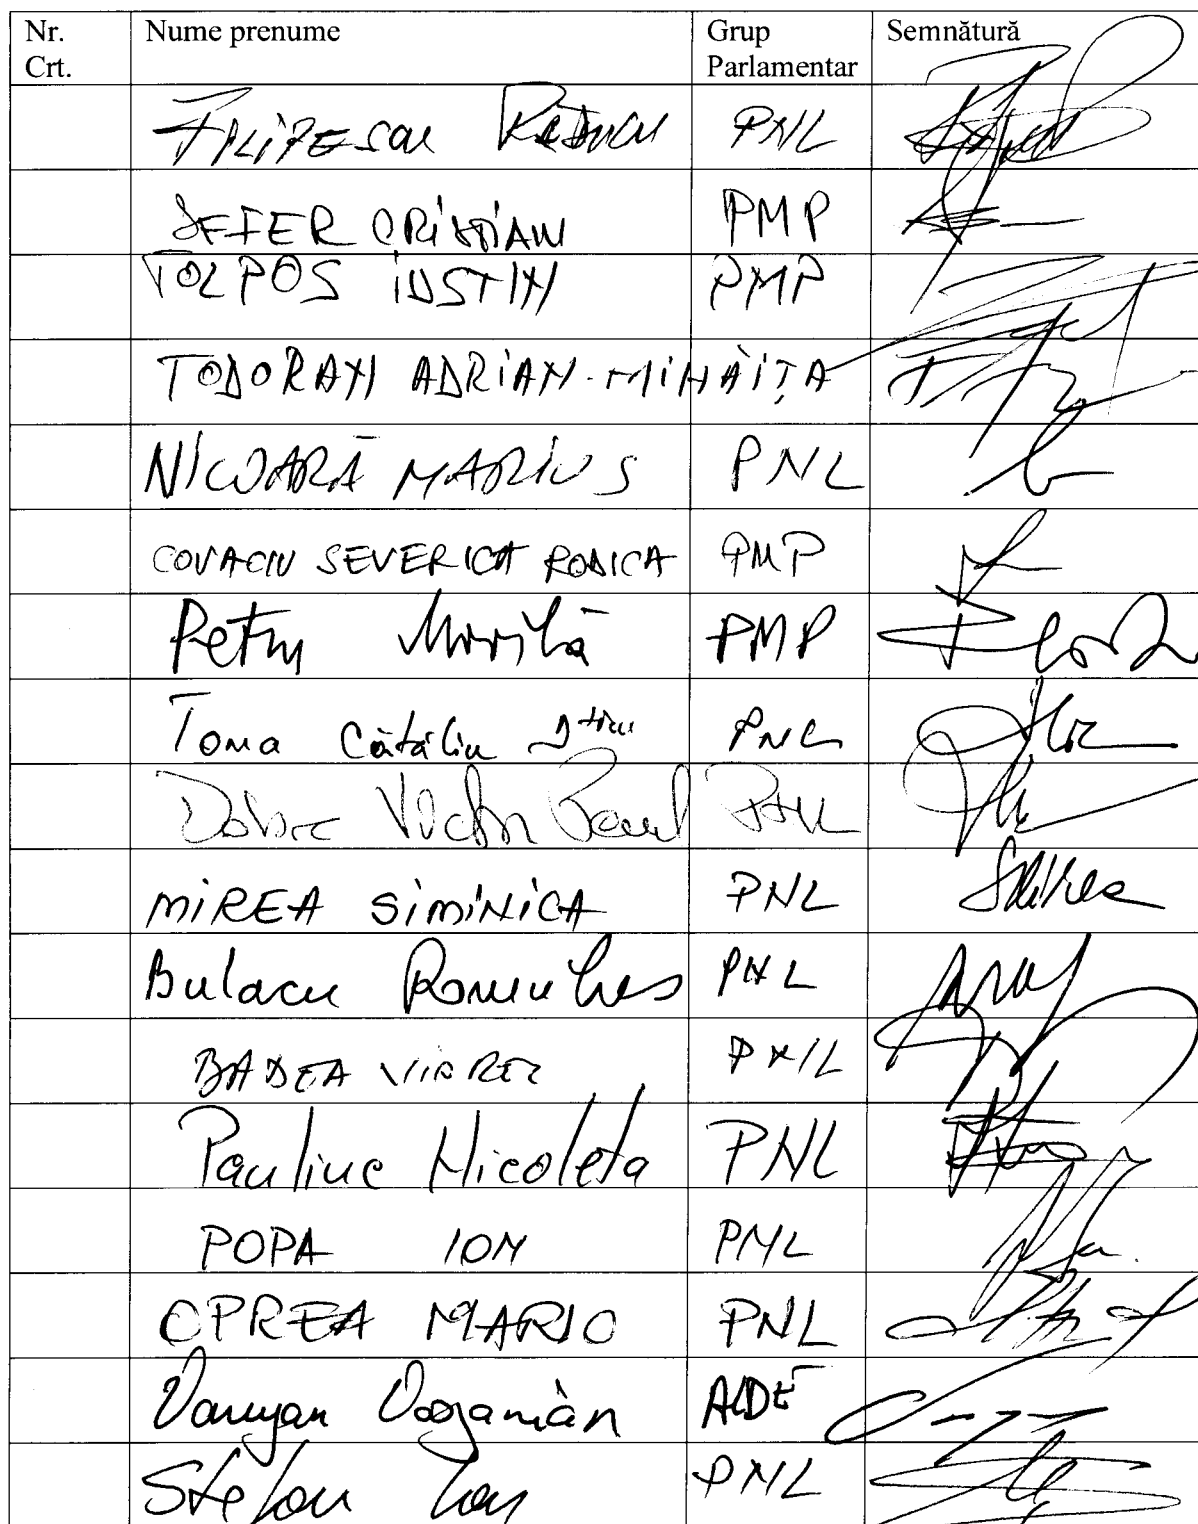 Nr. Crt. Nume prenume Grup Parlamentar Semnătură
FILIPESCU RĂDUCU PNL
SEFER CRISTIAN PMP
TOLPOS IUSTIN PMP
TODORAN ADRIAN-MIHĂIȚĂ
NICOARĂ MARIUS PNL
COVACIU SEVERICA RODICA PMP
Petru Movilă PMP
Toma Cătălin PNL
Dobre Victor Paul PNL
MIREA SIMINICA PNL
Bulacu Romulus PNL
BADEA VIOREL PNL
Pauliuc Nicoleta PNL
POPA ION PNL
OPREA MARIO PNL
Varujan Vosganian ALDE
Stefan Ion PNL